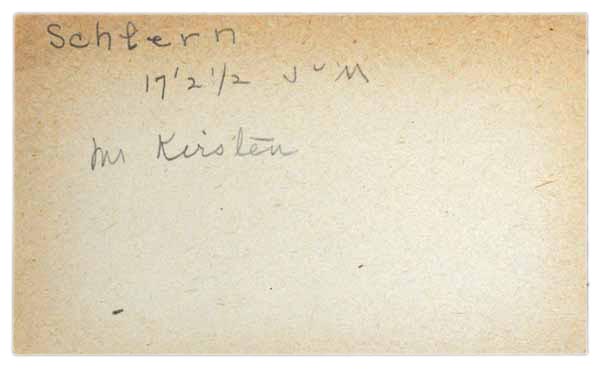 Schlern
17' 2 1/2
Mr Kirsten